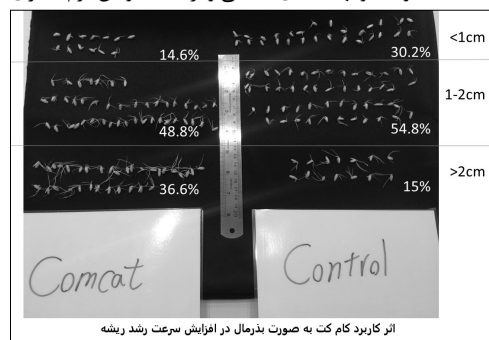 <1cm
14.6%
30.2%
1-2cm
48.8%
54.8%
>2cm
36.6%
15%
Comcat
Control
اثر کاربرد کام کت به صورت بذرمال در افزایش سرعت رشد ریشه